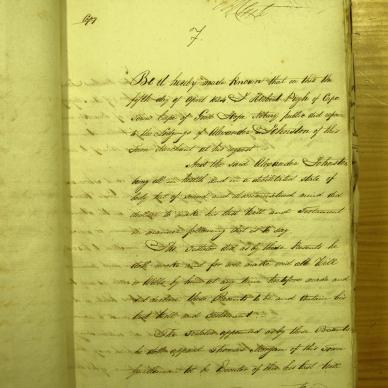 7
Be it hereby made Known that on this the
fifth day of April 1824 I Robert Pugh of Cape
Town Cape of Good Hope Notary public did repair
to the Lodgings of Alexander Johnston of this
Town Merchant at his request
And the said Alexander Johnston
being ill in health and in a debilitated state of
body but of sound and mind did
desire to make his last Will and Testament
in manner following that is to say
The Testator did as by these Presents he
doth revoke and for ever make void all Will
or Wills by him at any time heretofore made and
did declare these Presents to be and contain his
last Will and Testament
The Testator appointed as by these Presents
he doth appoint Thomas of this Town
Gentleman to be Executor of this his last Will